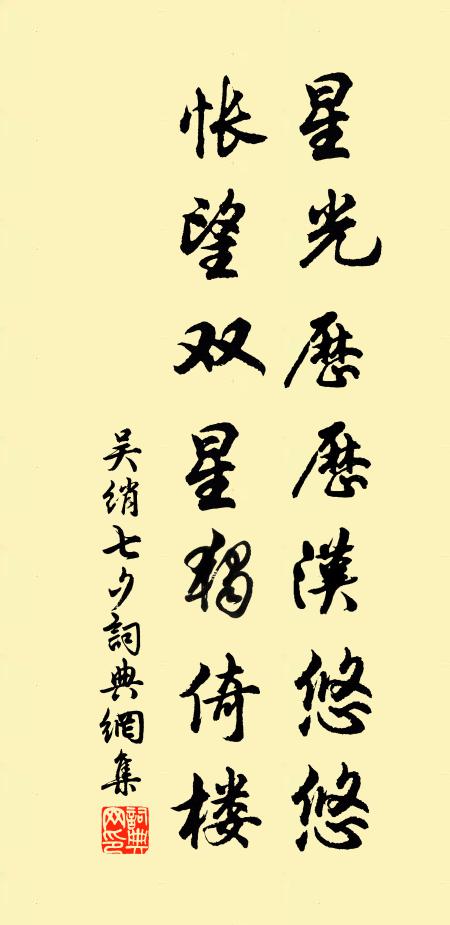 星光歷歷漢悠悠
怅望双星獨倚楼
吴绡七夕詞典網集
詞典
网印